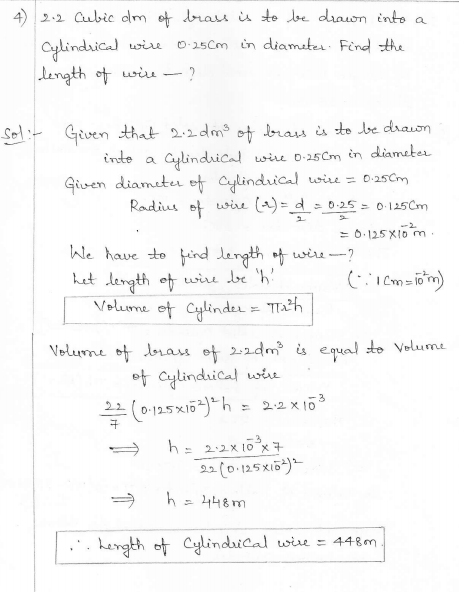 4) 2.2 Cubic dm of brass is to be drawn into a
Cylindrical wire 0.25Cm in diameter. Find the
length of wire — ?
Sol:- Given that 2.2dm³ of brass is to be drawn
into a Cylindrical wire 0.25Cm in diameter
Given diameter of Cylindrical wire = 0.25Cm
Radius of wire (r) = d/2 = 0.25/2 = 0.125Cm
= 0.125×10⁻² m.
We have to find length of wire — ?
Let length of wire be 'h' (∵ 1Cm = 10⁻² m)
Volume of Cylinder = πr²h
Volume of brass of 2.2dm³ is equal to Volume
of Cylindrical wire
22/7 (0.125×10⁻²)² h = 2.2 × 10⁻³
⟹ h = 2.2×10⁻³×7 / 22(0.125×10⁻²)²
⟹ h = 448m
∴ Length of Cylindrical wire = 448m.